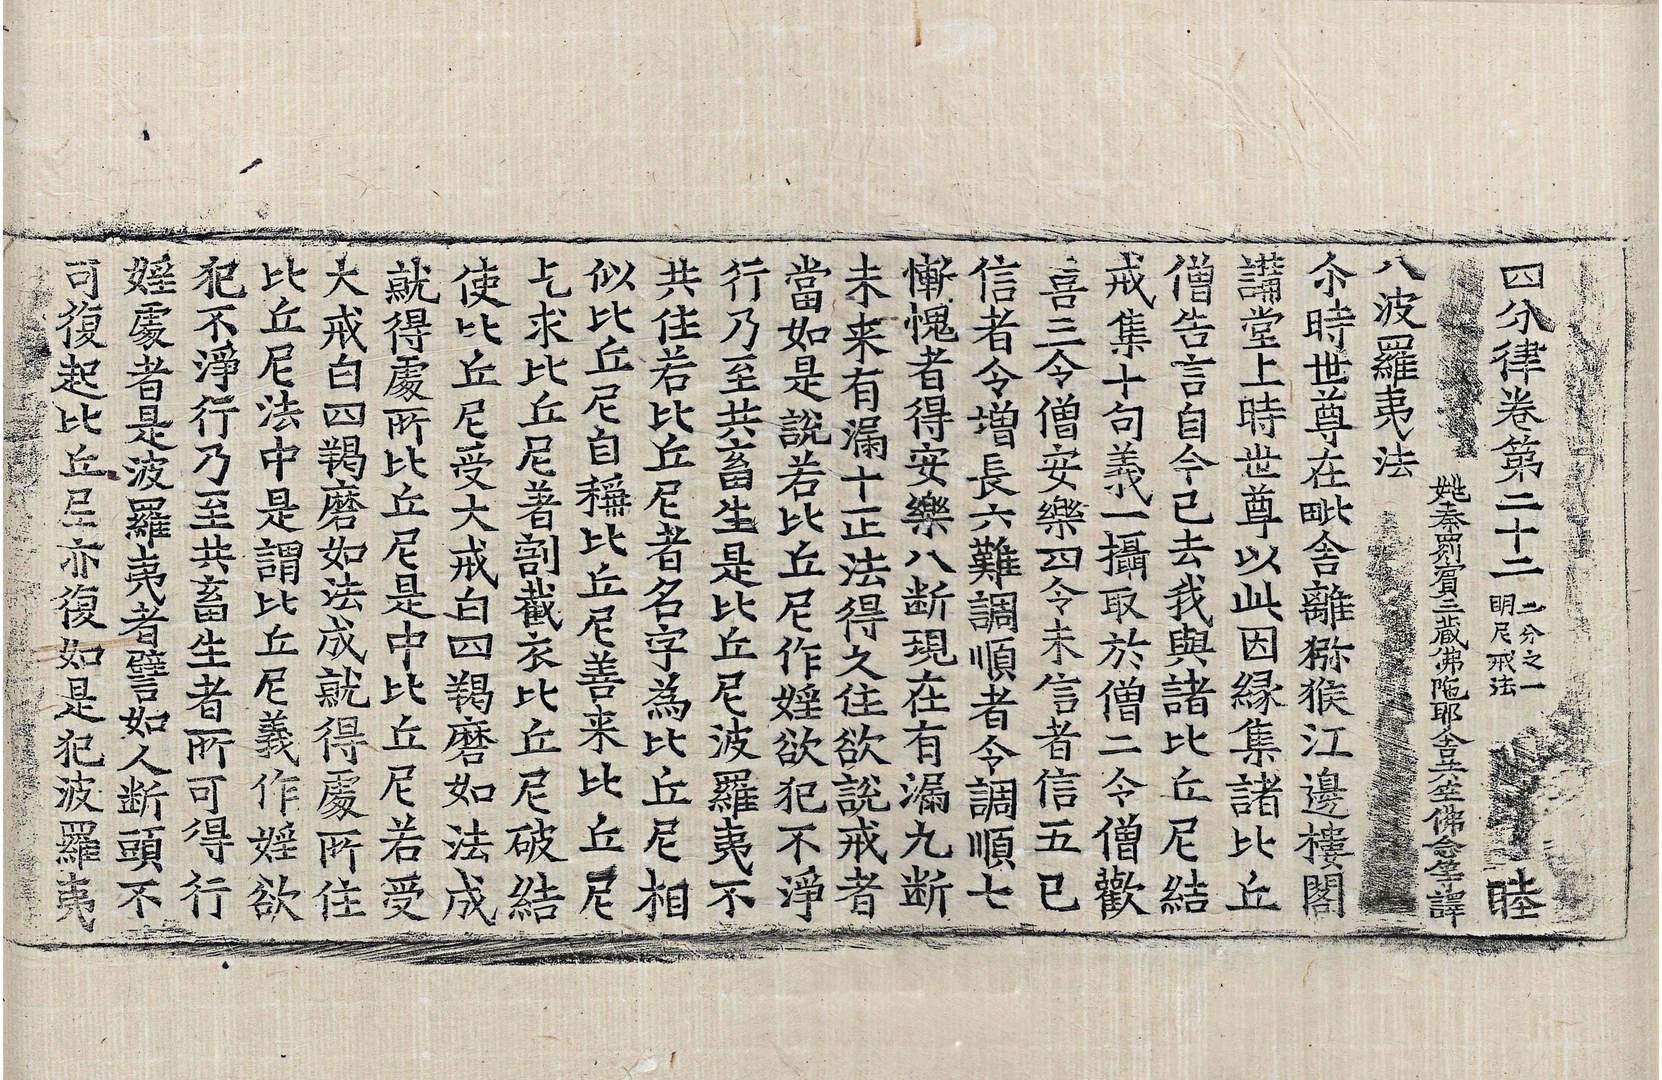 四分律卷第二十二 二分之一 明尼戒法 睦
姚秦罽賓三藏佛陁耶舍共竺佛念等譯
八波羅夷法
尒時世尊在毗舍離猕猴江邊樓閣
講堂上時世尊以此因縁集諸比丘
僧告言自今已去我與諸比丘尼結
戒集十句義一攝取於僧二令僧歡
喜三令僧安樂四令未信者信五已
信者令増長六難調順者令調順七
慚愧者得安樂八断現在有漏九断
未来有漏十正法得久住欲說戒者
當如是說若比丘尼作婬欲犯不淨
行乃至共畜生是比丘尼波羅夷不
共住若比丘尼者名字為比丘尼相
似比丘尼自稱比丘尼善来比丘尼
乞求比丘尼著割截衣比丘尼破結
使比丘尼受大戒白四羯磨如法成
就得處所比丘尼是中比丘尼若受
大戒白四羯磨如法成就得處所住
比丘尼法中是謂比丘尼義作婬欲
犯不淨行乃至共畜生者所可得行
婬處者是波羅夷者譬如人断頭不
可復起比丘尼亦復如是犯波羅夷